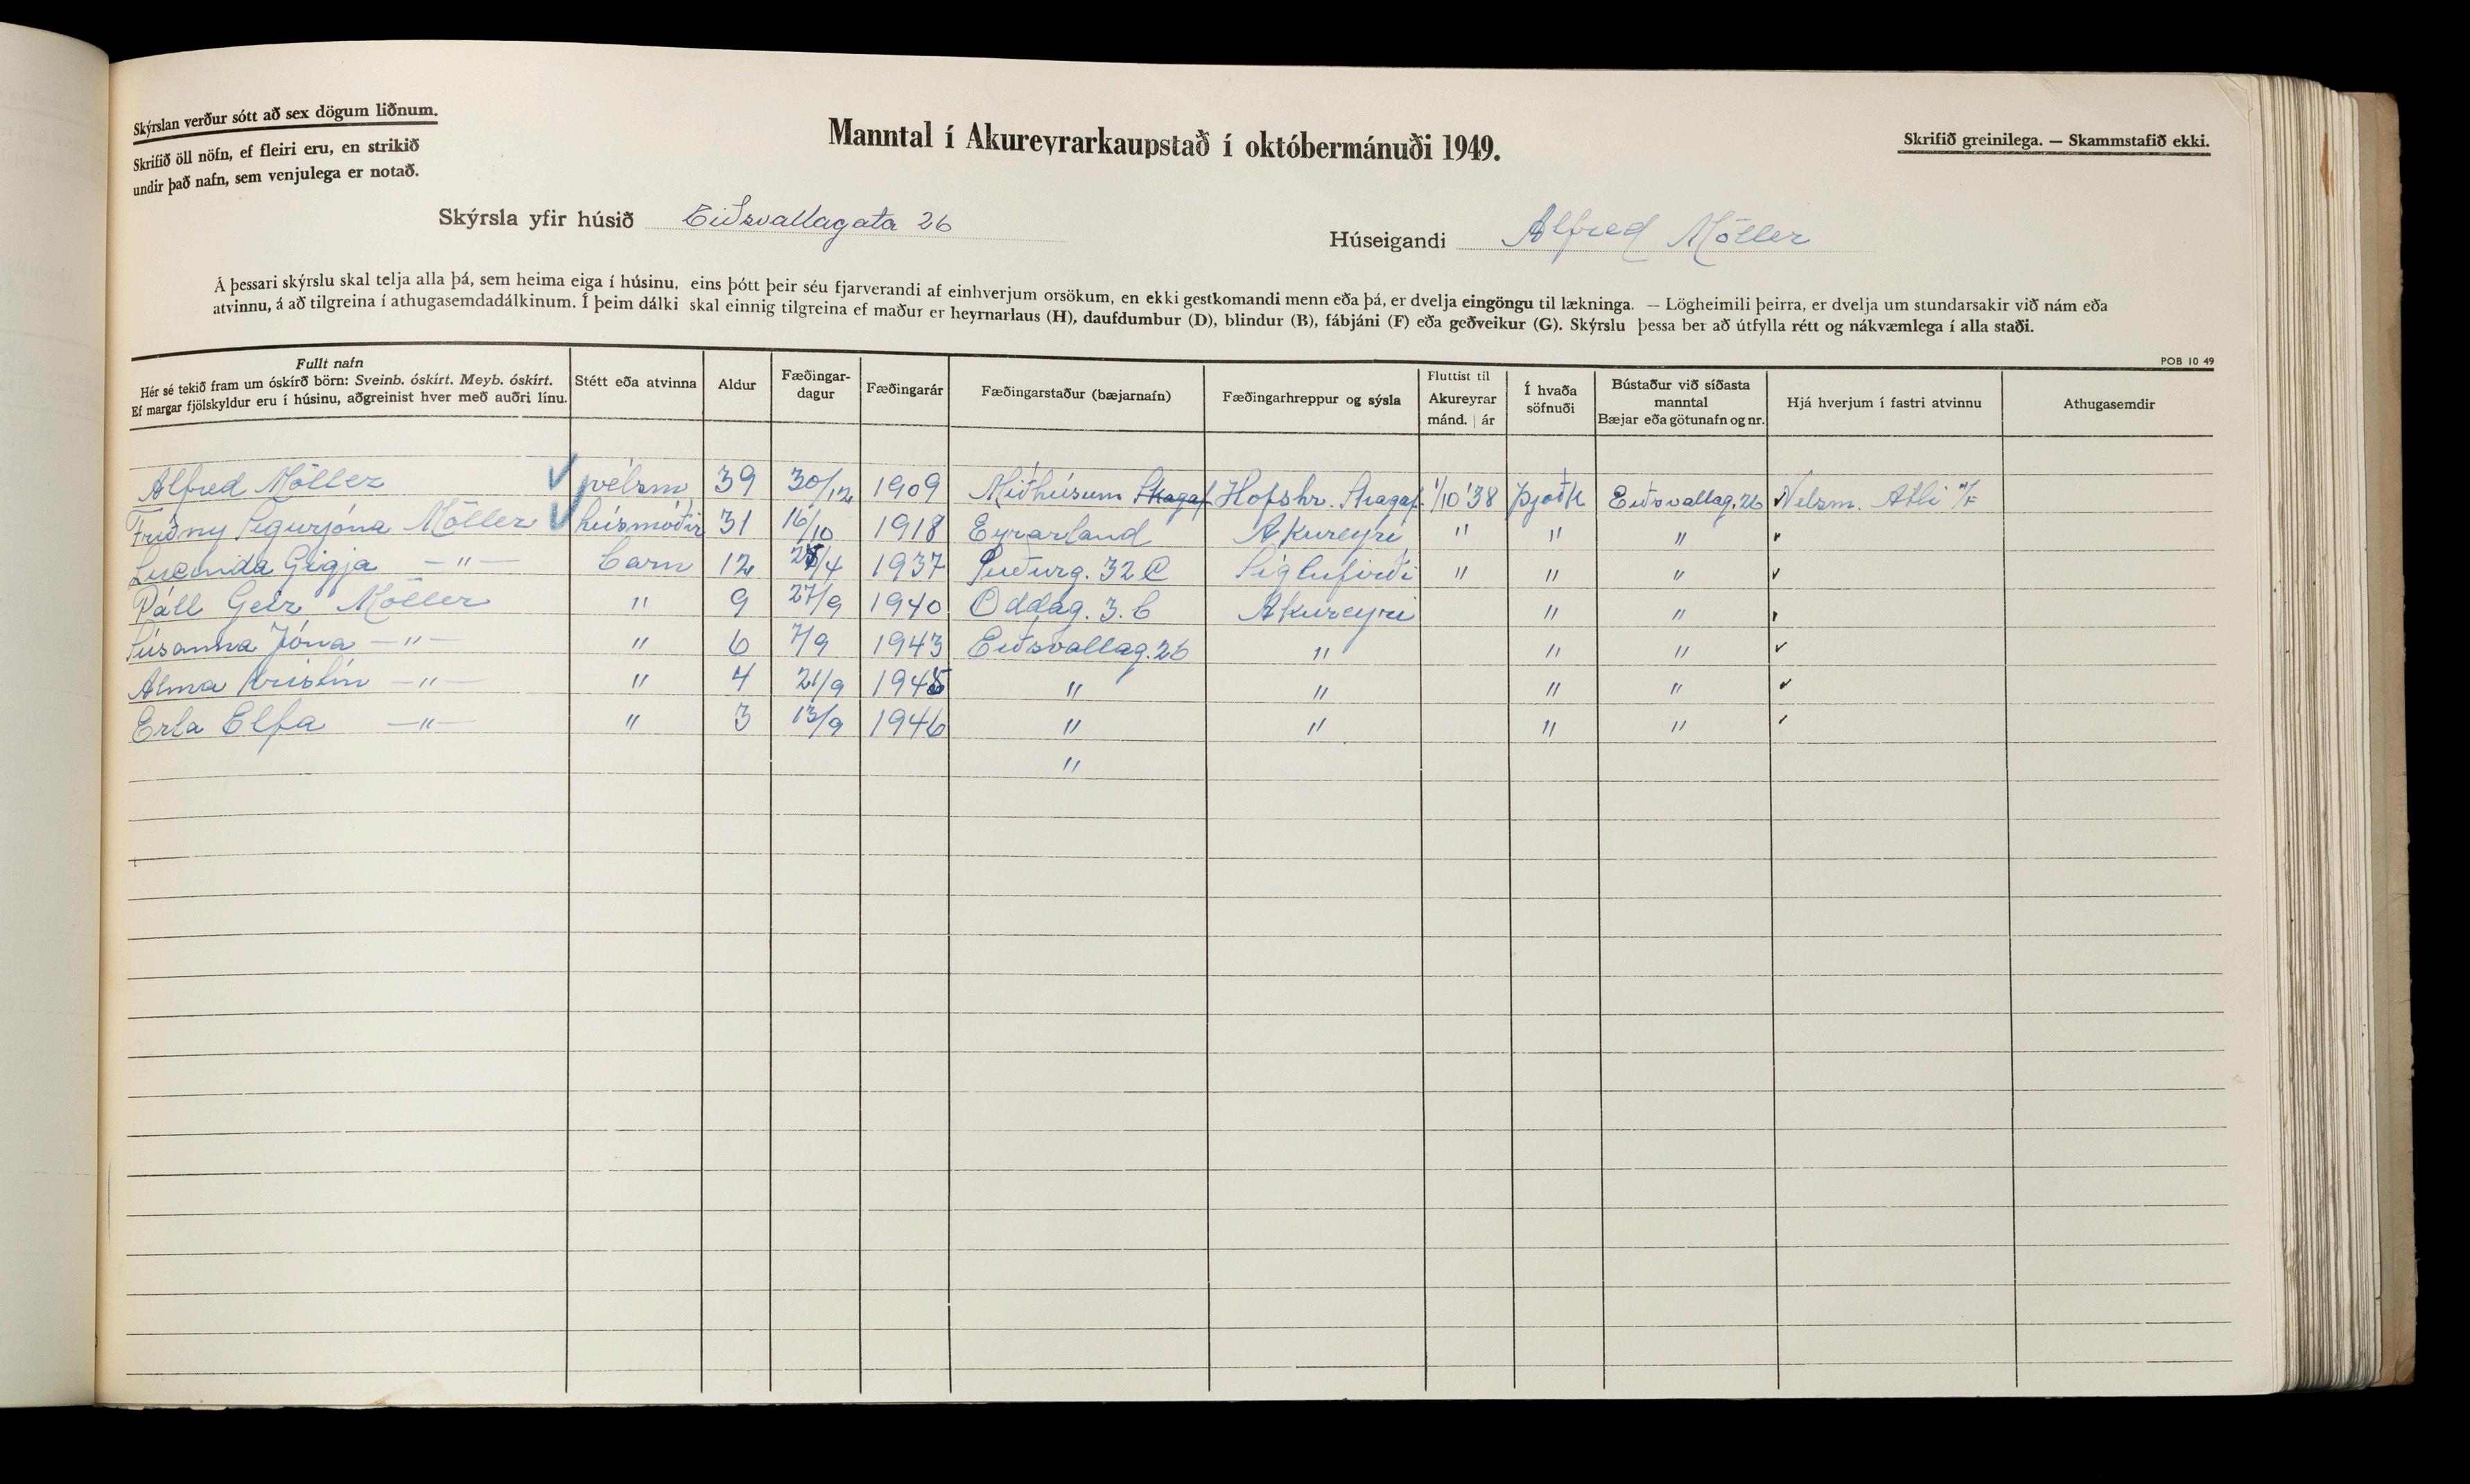 Skýrslan verður sótt að sex dögum liðnum.
Skrifið öll nöfn, ef fleiri eru, en strikið
undir það nafn, sem venjulega er notað.
Manntal í Akureyrarkaupstað í októbermánuði 1949.
Skrifið greinilega. — Skammstafið ekki.
Skýrsla yfir húsið Eiðsvallagata 26
Húseigandi Alfred Möller
Á þessari skýrslu skal telja alla þá, sem heima eiga í húsinu, eins þótt þeir séu fjarverandi af einhverjum orsökum, en ekki gestkomandi menn eða þá, er dvelja eingöngu til lækninga. — Lögheimili þeirra, er dvelja um stundarsakir við nám eða
atvinnu, á að tilgreina í athugasemdadálkinum. Í þeim dálki skal einnig tilgreina ef maður er heyrnarlaus (H), daufdumbur (D), blindur (B), fábjáni (F) eða geðveikur (G). Skýrslu þessa ber að útfylla rétt og nákvæmlega í alla staði.
POB 10 49
Fullt nafn
Hér sé tekið fram um óskírð börn: Sveinb. óskírt. Meyb. óskírt.
Ef margar fjölskyldur eru í húsinu, aðgreinist hver með auðri línu.
Stétt eða atvinna
Aldur
Fæðingar-
dagur
Fæðingarár
Fæðingarstaður (bæjarnafn)
Fæðingarhreppur og sýsla
Fluttist til
Akureyrar
mánd. | ár
Í hvaða
söfnuði
Bústaður við síðasta
manntal
Bæjar eða götunafn og nr.
Hjá hverjum í fastri atvinnu
Athugasemdir
Alfred Möller ✓ vélsm 39 30/12 1909 Miðhúsum Skagaf Hofshr. Skagaf. 1/10 '38 Þjóðk Eiðsvallag. 26 ✓ Velsm. Atli H/F
Friðny Sigurjóna Möller ✓ húsmóðir 31 16/10 1918 Eyrarland Akureyri " " "
Lucinda Gigja —"— barn 12 /4 1937 Suðurg. 32 C Siglufirði " " " ✓
Páll Geir Möller " 9 27/9 1940 Oddag. 3. b Akureyri " "
Súsanna Jóna —"— " 6 7/9 1943 Eiðsvallag. 26 " " " ✓
Alma Kristín —"— " 4 21/9 1945 " " " " ✓
Erla Elfa —"— " 3 13/9 1946 " " " "
"